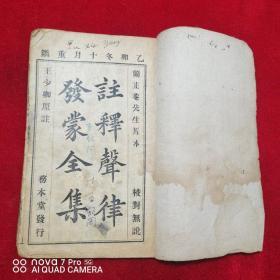 乙卯冬十月重鐫
蘭止菴先生原本
校對無訛
註釋聲律
發蒙全集
王少卿原註
務本堂發行
AI QUAD CAMERA